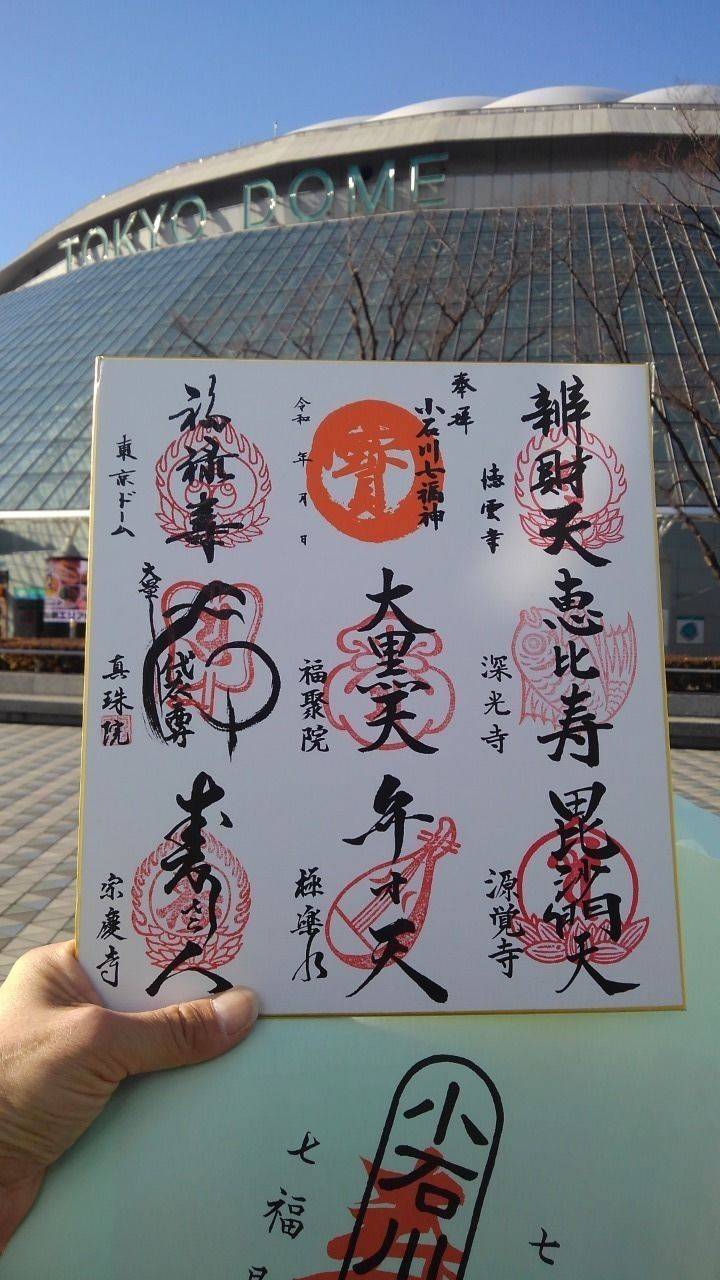 TOKYO DOME
奉拝
小石川七福神
寳
令和 年 月 日
辨財天
徳雲寺
恵比寿
深光寺
毘沙門天
源覚寺
大黒天
福聚院
弁才天
極楽水
福禄寿
東京ドーム
真珠院
寿老人
宗慶寺
小石川
七福
七